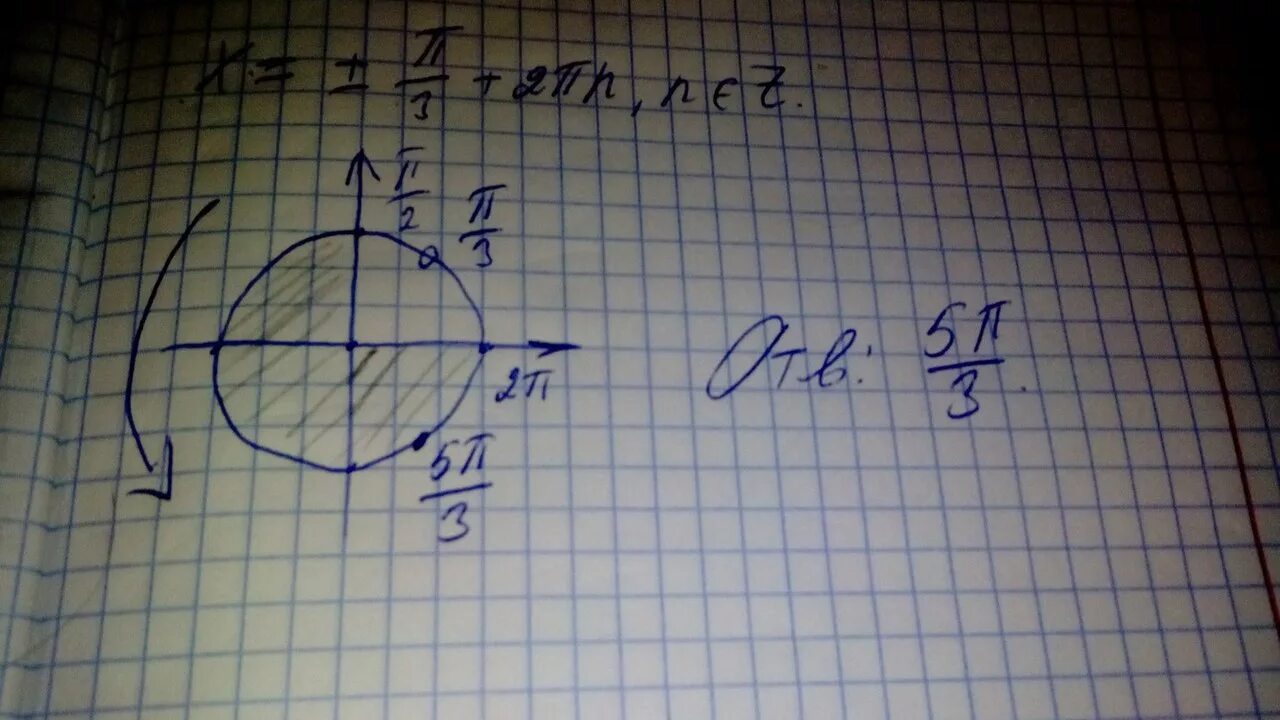 X = ± π/3 + 2πn, n ∈ Z.
π/2
π/3
2π
5π/3
Отв: 5π/3.